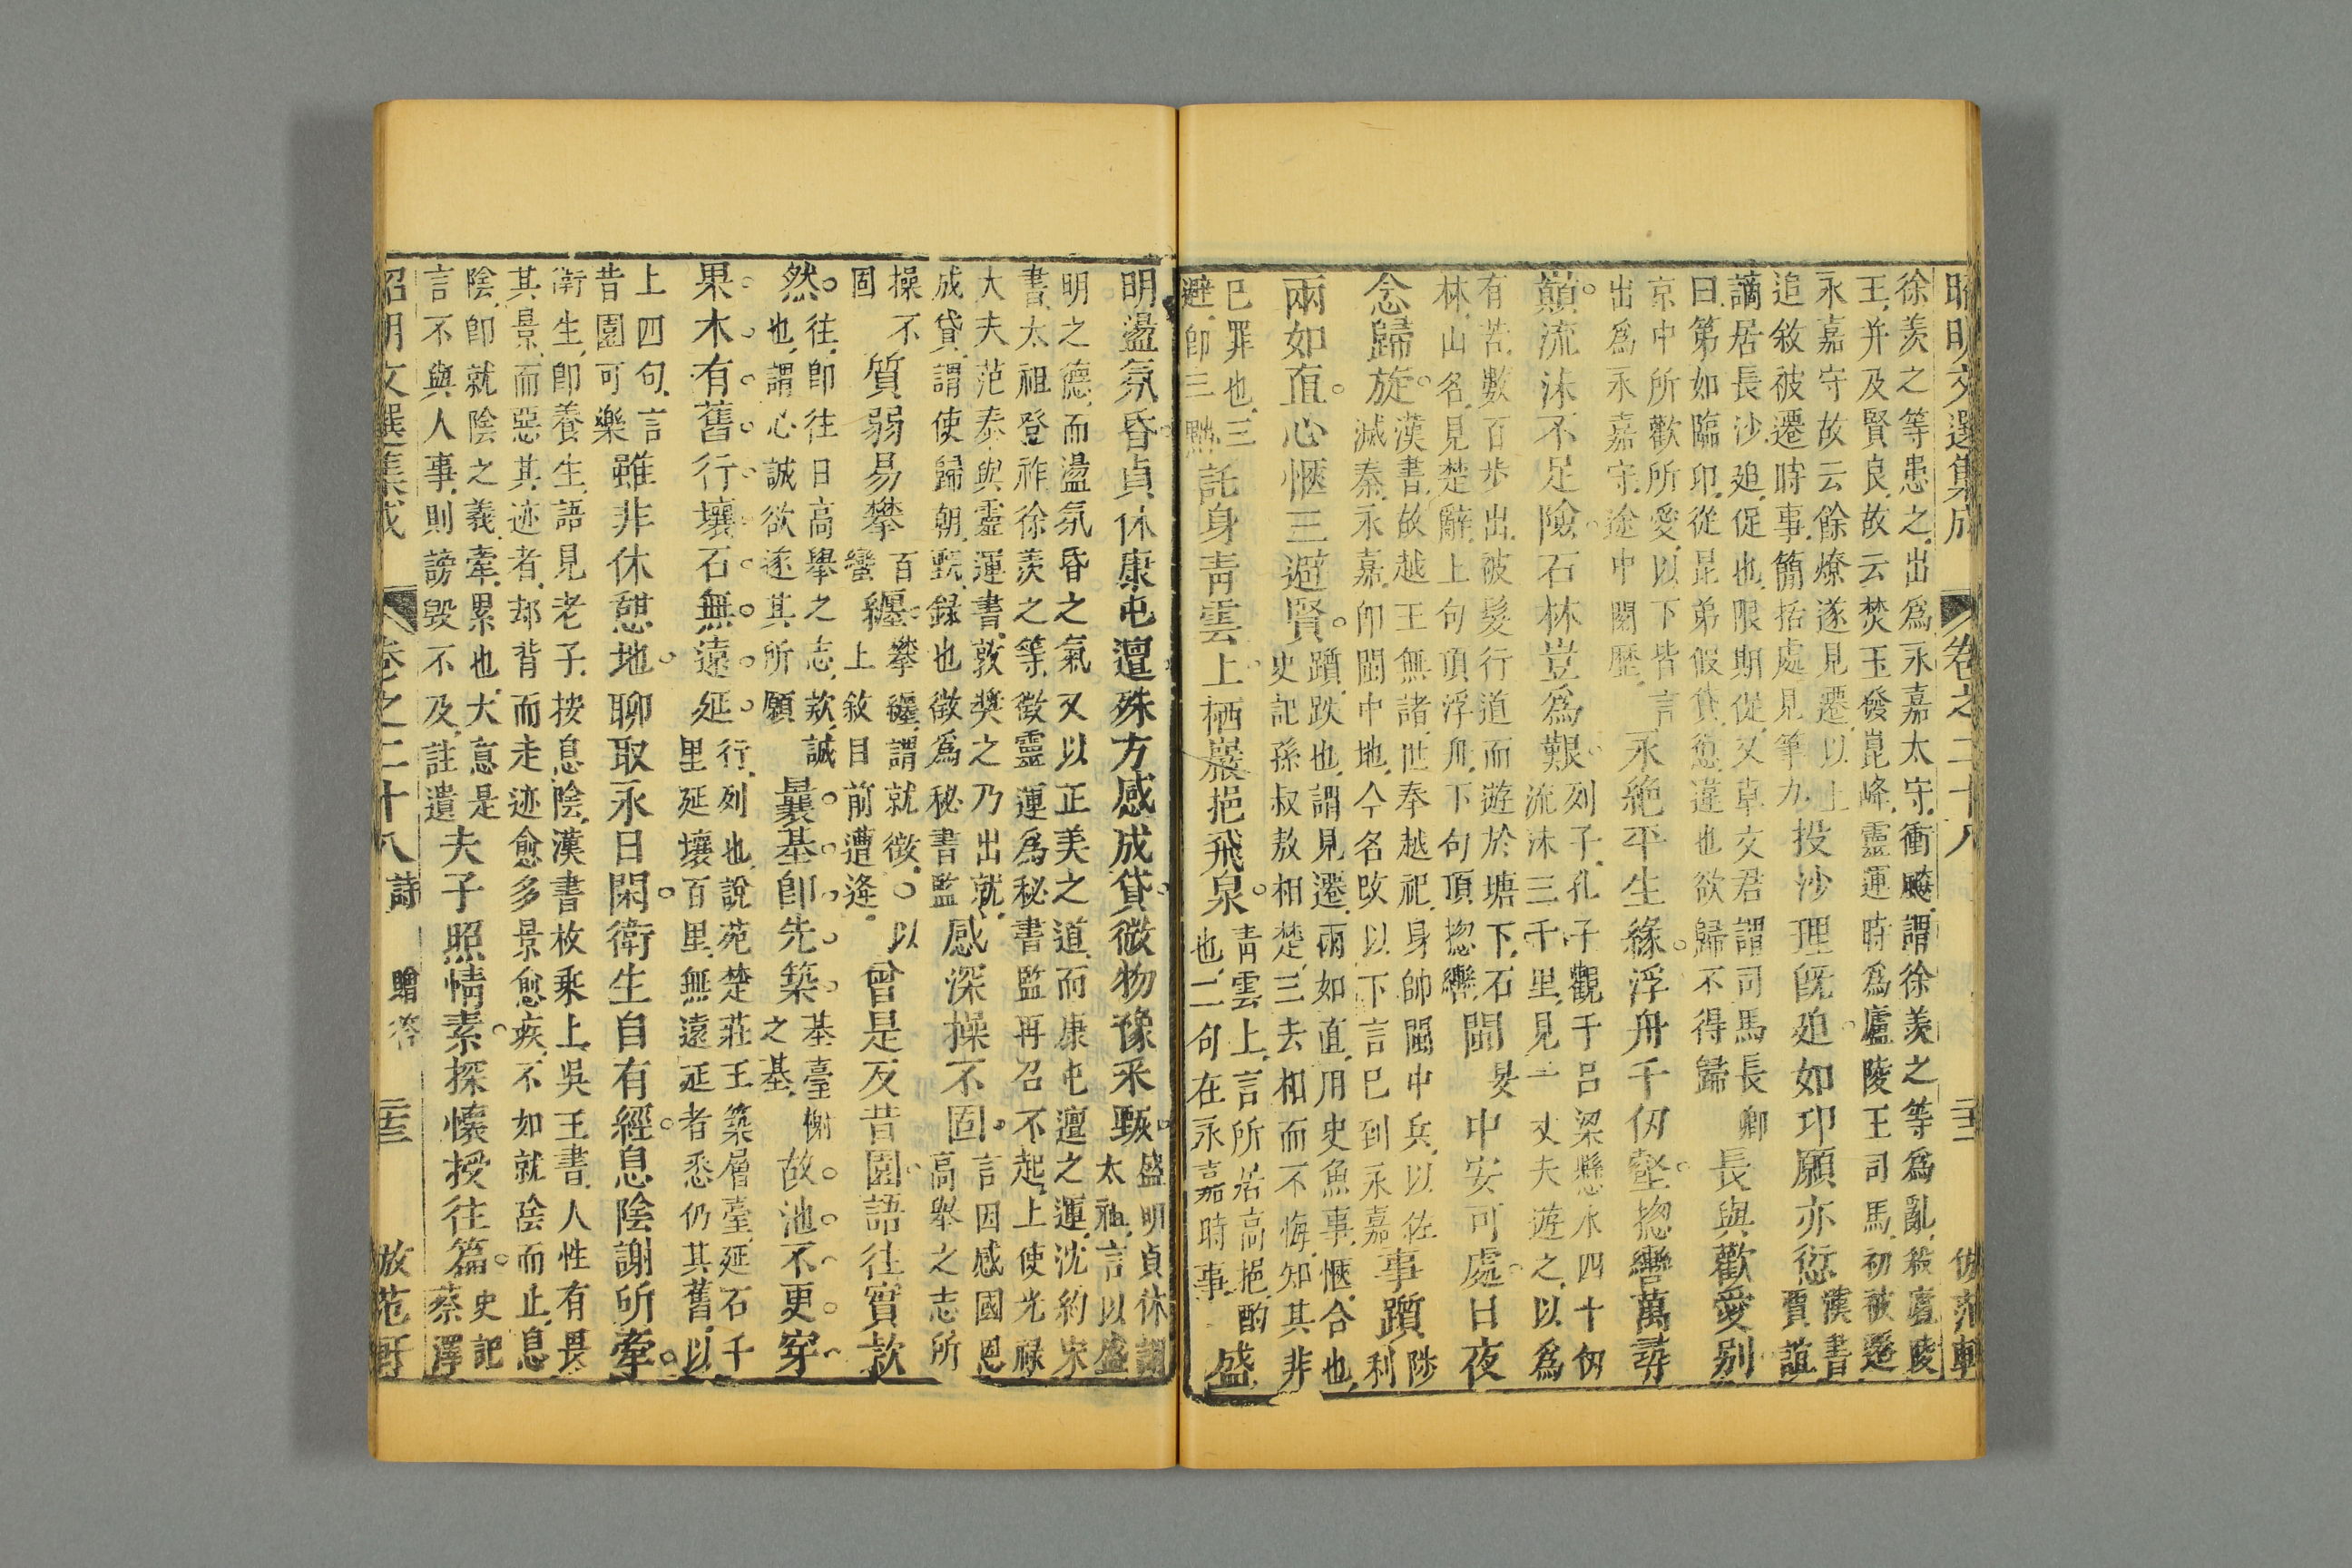 昭明文選集成 卷之二十八 二十三 倣范軒
徐羨之等患之出爲永嘉太守衝飈謂徐羨之等爲亂殺廬陵
王并及賢良故云焚玉發崑峰靈運時爲廬陵王司馬初被遷
永嘉守故云餘燎遂見遷以上
追敘被遷時事簡括處見筆力投沙理既迫如邛願亦愆漢書賈誼
謫居長沙迫促也限期促又卓文君謂司馬長卿
曰第如臨邛從昆弟假貸愆違也欲歸不得歸長與歡愛别
京中所歡所愛以下皆言
出爲永嘉守途中閱歷永絶平生緣浮舟千仞壑揔轡萬尋
巔流沫不足險石林豈爲艱列子孔子觀于呂梁懸水四十仞流沫三千里見一丈夫遊之以爲
有苦數百步出被髮行道而遊於塘下石
林山名見楚辭上句頂浮舟下句頂揔轡閩中安可處日夜
念歸旋漢書故越王無諸世奉越祀身帥閩中兵以佐滅秦永嘉卽閩中地今名攺以下言巳到永嘉事躓利
兩如直心愜三避賢躓跌也謂見遷兩如直用史魚事愜合也史記孫叔敖相楚三去相而不悔知其非
巳罪也三
避卽三黜託身青雲上栖巖挹飛泉青雲上言所居高挹酌也二句在永嘉時事盛
明盪氛昏貞休康屯邅殊方感成貸微物豫采甄盛明貞休謂太祖言以盛
明之德而盪氛昏之氣又以正美之道而康屯邅之運沈約宋
書太祖登祚徐羨之等徵靈運爲秘書監再召不起上使光祿
大夫范泰與靈運書敦奬之乃出就
成貸謂使歸朝甄録也徵爲秘書監感深操不固言因感國恩高舉之志所
操不
固質弱易攀纏百攀纏謂就徵以上敘目前遭逢曾是反昔園語往實款
然往卽往日高舉之志款誠
也謂心誠欲遂其所願曩基卽先築基臺榭之基故池不更穿
果木有舊行壤石無遠延行列也說苑楚莊王築層臺延石千里延壤百里無遠延者悉仍其舊以
上四句言
昔園可樂雖非休憩地聊取永日閑衛生自有經息陰謝所牽
衛生卽養生語見老子按息陰漢書枚乘上吳王書人性有畏
其景而惡其迹者却背而走迹愈多景愈疾不如就陰而止息
陰卽就陰之義牽累也大意是
言不與人事則謗毀不及註遺夫子照情素探懷授往篇史記蔡澤
昭明文選集成 卷之二十八 詩 贈答 二十三 倣范軒